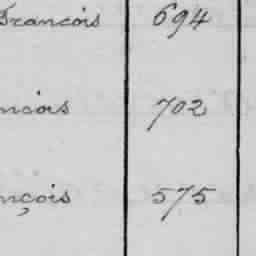 Francois 694
ncois 702
nçois 575